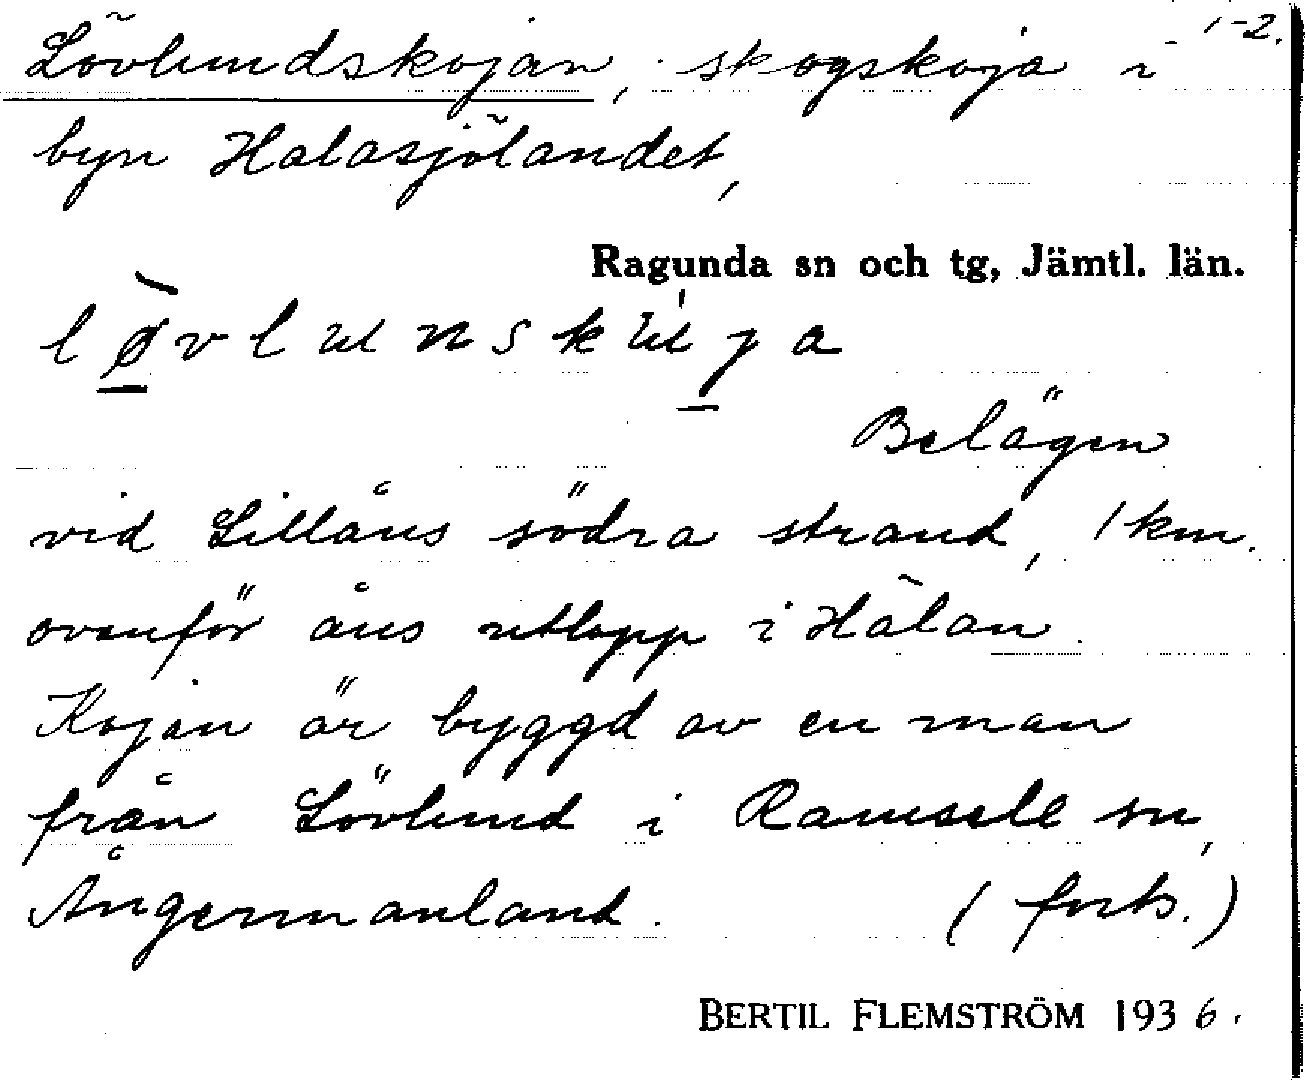 1-2.
Lövlundskojan, skogskoja i
byn Halasjölandet,
Ragunda sn och tg, Jämtl. län.
Belägen
vid Lillåns södra strand, 1 km.
ovanför åns utlopp i Hålan.
Kojan är byggd av en man
från Lövlund i Ramsele sn,
Ångermanland. (forts.)
BERTIL FLEMSTRÖM 1936.